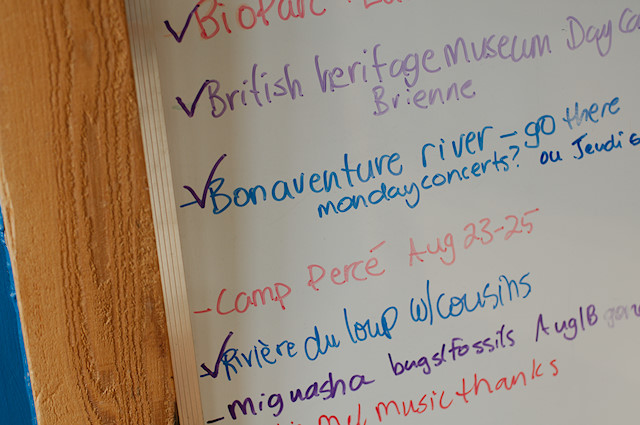 ✓Bioparc
✓British heritage museum Day Ca
Brienne
✓Bonaventure river - go there
monday concerts? ou Jeudi
- Camp Percé Aug 23-25
✓Rivière du loup w/cousins
- miguasha bugs/fossils Aug/B
music thanks